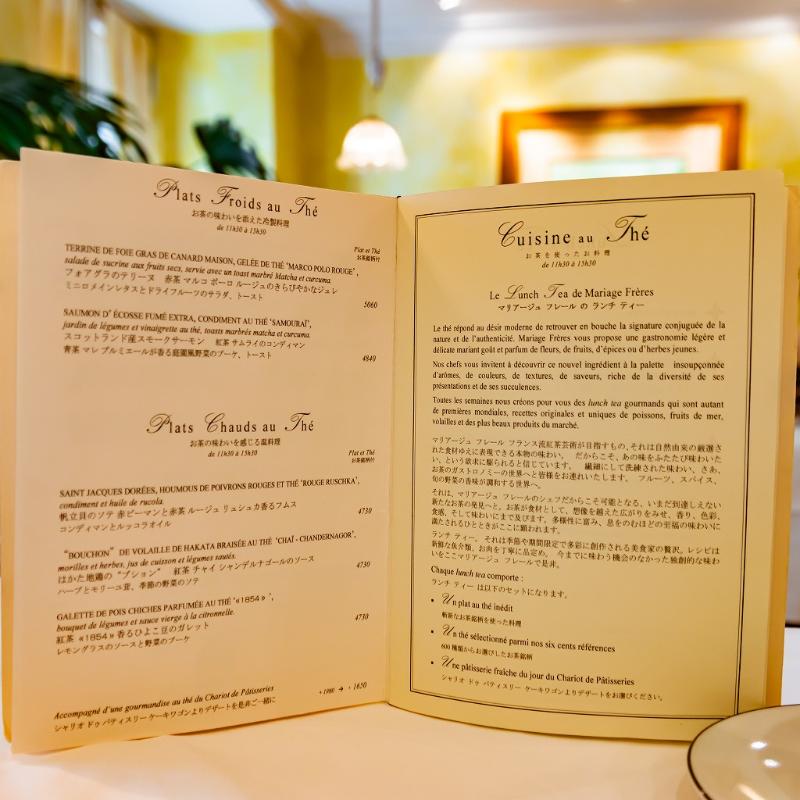 Plats Froids au Thé
お茶の味わいを添えた冷製料理
de 11h30 à 15h30
Plat et Thé
お茶銘柄付
TERRINE DE FOIE GRAS DE CANARD MAISON, GELÉE DE THÉ ‘MARCO POLO ROUGE’,
salade de sucrine aux fruits secs, servie avec un toast marbré Matcha et curcuma.
フォアグラのテリーヌ 赤茶 マルコ ポーロ ルージュのきらびやかなジュレ
ミニロメインレタスとドライフルーツのサラダ、トースト
5060
SAUMON D’ ÉCOSSE FUMÉ EXTRA, CONDIMENT AU THÉ ‘SAMOURAÏ’,
jardin de légumes et vinaigrette au thé, toasts marbrés matcha et curcuma.
スコットランド産スモークサーモン 紅茶 サムライのコンディマン
青茶 マレ プルミエールが香る庭園風野菜のブーケ、トースト
4840
Plats Chauds au Thé
お茶の味わいを感じる温料理
de 11h30 à 15h30
Plat et Thé
お茶銘柄付
SAINT JACQUES DORÉES, HOUMOUS DE POIVRONS ROUGES ET THÉ ‘ROUGE RUSCHKA’,
condiment et huile de rucola.
帆立貝のソテ 赤ピーマンと赤茶 ルージュ リュシュカ香るフムス
コンディマンとルッコラオイル
4730
“BOUCHON” DE VOLAILLE DE HAKATA BRAISÉE AU THÉ ‘CHAÏ - CHANDERNAGOR’,
morilles et herbes, jus de cuisson et légumes sautés.
はかた地鶏の“ブション” 紅茶 チャイ シャンデルナゴールのソース
ハーブとモリーユ茸、季節の野菜のソテ
4730
GALETTE DE POIS CHICHES PARFUMÉE AU THÉ ‘«1854» ’,
bouquet de légumes et sauce vierge à la citronnelle.
紅茶 «1854» 香るひよこ豆のガレット
レモングラスのソースと野菜のブーケ
4730
Accompagné d’une gourmandise au thé du Chariot de Pâtisseries
+ 1980 → + 1650
シャリオ ドゥ パティスリー ケーキワゴンよりデザートを是非ご一緒に
Cuisine au Thé
お茶を使ったお料理
de 11h30 à 15h30
Le Lunch Tea de Mariage Frères
マリアージュ フレール の ランチ ティー
Le thé répond au désir moderne de retrouver en bouche la signature conjuguée de la
nature et de l’authenticité. Mariage Frères vous propose une gastronomie légère et
délicate mariant goût et parfum de fleurs, de fruits, d’épices ou d’herbes jeunes.
Nos chefs vous invitent à découvrir ce nouvel ingrédient à la palette insoupçonnée
d’arômes, de couleurs, de textures, de saveurs, riche de la diversité de ses
présentations et de ses succulences.
Toutes les semaines nous créons pour vous des lunch tea gourmands qui sont autant
de premières mondiales, recettes originales et uniques de poissons, fruits de mer,
volailles et des plus beaux produits du marché.
マリアージュ フレール フランス流紅茶芸術が目指すもの、それは自然由来の厳選さ
れた食材ゆえに表現できる本物の味わい。 だからこそ、あの味をふたたび味わいた
い、という欲求に駆られると信じています。 繊細にして洗練された味わい、さあ、
お茶のガストロノミーの世界へと皆様をお連れいたします。フルーツ、スパイス、
旬の野菜の香味が調和する世界へ。
それは、マリアージュ フレールのシェフだからこそ可能となる、いまだ到達しえない
新たなお茶の発見へと。お茶が食材として、想像を越えた広がりをみせ、香り、色彩、
食感、そして味わいにまで及びます。多様性に富み、息をのむほどの至福の味わいに
満たされるひとときがここに願われます。
ランチ ティー、それは季節や期間限定で多彩に創作される美食家の贅沢。レシピは
新鮮な魚介類、お肉を丁寧に品定め。 今までに味わう機会のなかった独創的な味わ
いをここマリアージュ フレールで是非。
Chaque lunch tea comporte :
ランチ ティー は以下のセットになります。
• Un plat au thé inédit
斬新なお茶銘柄を使った料理
• Un thé sélectionné parmi nos six cents références
600 種類からお選びしたお茶銘柄
• Une pâtisserie fraîche du jour du Chariot de Pâtisseries
シャリオ ドゥ パティスリー ケーキワゴンよりデザートをお選びください。